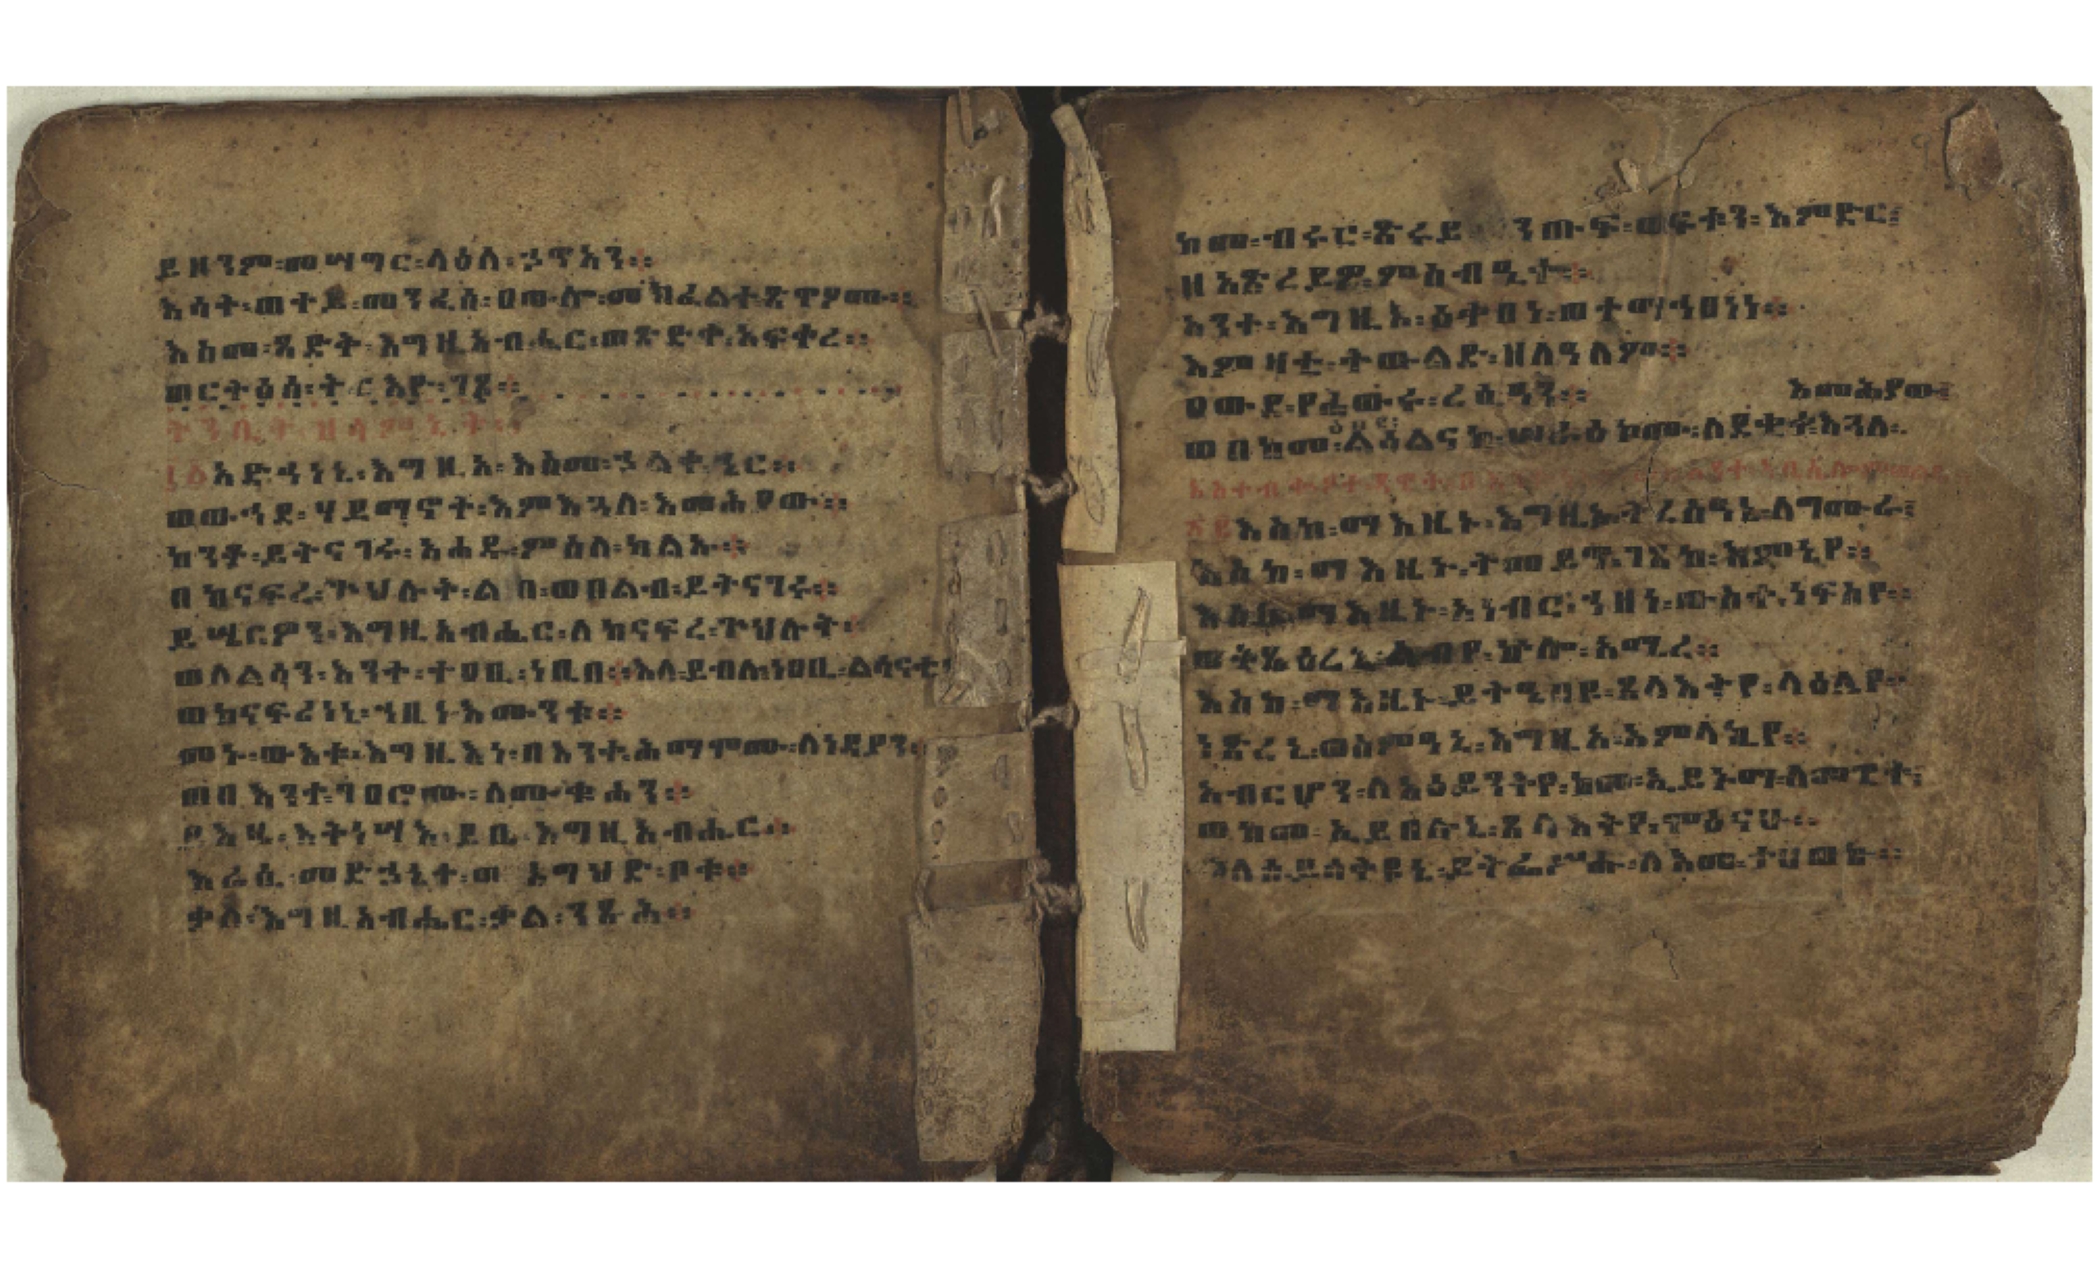 ይዘንም፡መሣግር፡ላዕለ፡ኃጥአን።
እሳት፡ወተይ፡መንፈሰ፡ዐውሎ፡መክፈልተ፡ጽዋዖሙ።
እስመ፡ጻድቅ፡እግዚአብሔር፡ወጽድቀ፡አፍቀረ።
ወርትዕሰ፡ትሬእዮ፡ገጹ።
ትንቢት፡
፲፩አድኅነኒ፡እግዚኦ፡እስመ፡ኃልቀ፡ኄር።
ወውኅደ፡ሃይማኖት፡እምእጓለ፡እመሕያው።
ከንቶ፡ይትናገሩ፡አሐዱ፡ምስለ፡ካልኡ።
በከናፍረ፡ጕህሉት፡ልበ፡ወበልብ፡ይትናገሩ።
ይሤርዎን፡እግዚአብሔር፡ለከናፍረ፡ጕህሉት።
ወለልሳን፡እንተ፡ተዐቢ፡ነቢበ።እለ፡ይብሉ፡ነዐቢ፡ልሳናቲነ
ወከናፍሪነኒ፡ኀቤነ፡እሙንቱ።
መኑ፡ውእቱ፡እግዚእነ፡በእንተ፡ሕማሞሙ፡ለነዳያን።
ወበእንተ፡ገዐሮሙ፡ለሙቁሓን።
ይእዜ፡እትነሣእ፡ይቤ፡እግዚአብሔር።
እሬሲ፡መድኃኒተ፡ወእግህድ፡ቦቱ።
ቃለ፡እግዚአብሔር፡ቃል፡ንጹሕ።
ከመ፡ብሩር፡ጽሩይ፡ንጡፍ፡ወፍቱን፡እምድር፤
ዘአጽረይዎ፡ምስብዒተ።
አንተ፡እግዚኦ፡ዕቀበነ፡ወተማኅፀነነ።
እምዛቲ፡ትውልድ፡ዘለዓለም።
ዐውደ፡የሐውሩ፡ረሲዓን።
እመሕያው፤
ወበከመ፡ልዕልናከ፡ሠራዕኮሙ፡ለደቂቀ፡እጓለ፡
፲፪እስከ፡ማእዜኑ፡እግዚኦ፡ትረስዓኒ፡ለግሙራ፤
እስከ፡ማእዜኑ፡ትመይጥ፡ገጸከ፡እምኔየ።
እስከ፡ማእዜኑ፡አነብር፡ኀዘነ፡ውስተ፡ነፍስየ።
ወትጼዕረኒ፡ልብየ፡ኵሎ፡አሚረ።
እስከ፡ማእዜኑ፡ይትዔበዩ፡ጸላእትየ፡ላዕሌየ።
ነጽረኒ፡ወስምዓኒ፡እግዚኦ፡አምላኪየ።
አብርሆን፡ለአዕይንትየ፡ከመ፡ኢይኑማ፡ለመዊት፤
ወከመ፡ኢይበሉኒ፡ጸላእትየ፡ሞዕናሁ።
እለሰ፡ይሣቅዩኒ፡ይትፌሥሑ፡ለእመ፡ተሀወኩ።